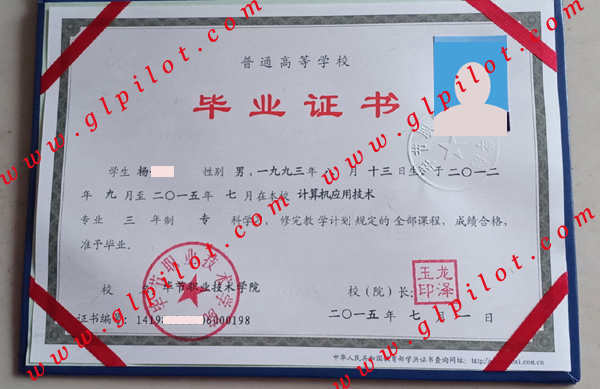 普通高等学校
毕业证书
学生 杨 性别 男,一九九三年 月 十三 日生 于二〇一二
年 九 月至 二〇一五年 七 月在本校 计算机应用技术
专业 三 年制 专 科学习,修完教学计划规定的全部课程,成绩合格,
准予毕业。
校 名 毕节职业技术学院
校(院)长: 玉龙印泽
证书编号: 1419 06000198
二〇一五年 七 月 一 日
中华人民共和国教育部学历证书查询网址:
毕节职业技术学院
www.glpilot.com
www.glpilot.com
www.glpilot.com
www.glpilot.com